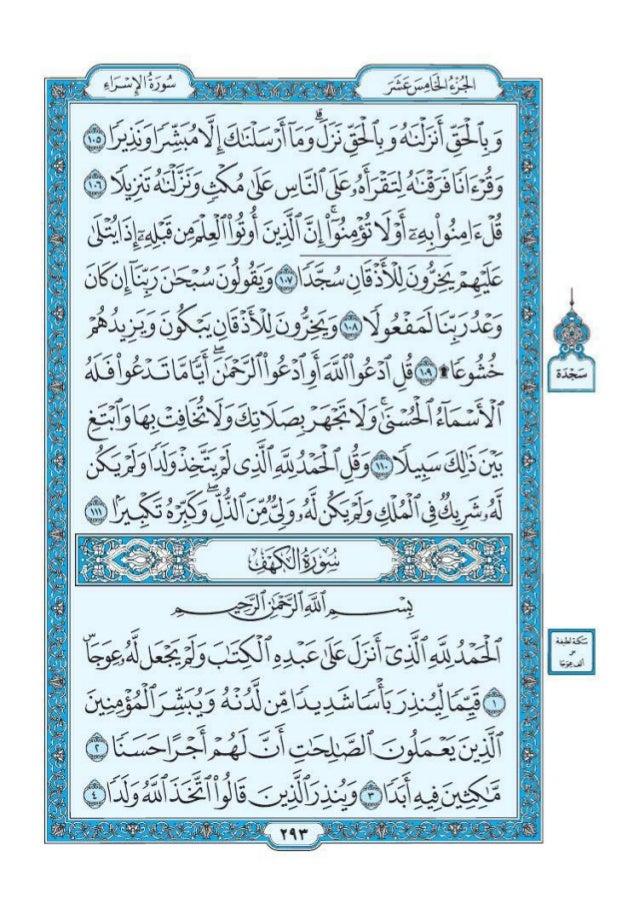 سُورَةُ الإِسْرَاءِ
الجُزْءُ الخَامِسَ عَشَرَ
وَبِٱلْحَقِّ أَنزَلْنَٰهُ وَبِٱلْحَقِّ نَزَلَۗ وَمَآ أَرْسَلْنَٰكَ إِلَّا مُبَشِّرًا وَنَذِيرًا ١٠٥
وَقُرْءَانًا فَرَقْنَٰهُ لِتَقْرَأَهُۥ عَلَى ٱلنَّاسِ عَلَىٰ مُكْثٍ وَنَزَّلْنَٰهُ تَنزِيلًا ١٠٦
قُلْ ءَامِنُوا۟ بِهِۦٓ أَوْ لَا تُؤْمِنُوٓا۟ۚ إِنَّ ٱلَّذِينَ أُوتُوا۟ ٱلْعِلْمَ مِن قَبْلِهِۦٓ إِذَا يُتْلَىٰ
عَلَيْهِمْ يَخِرُّونَ لِلْأَذْقَانِ سُجَّدًا ١٠٧ وَيَقُولُونَ سُبْحَٰنَ رَبِّنَآ إِن كَانَ
وَعْدُ رَبِّنَا لَمَفْعُولًا ١٠٨ وَيَخِرُّونَ لِلْأَذْقَانِ يَبْكُونَ وَيَزِيدُهُمْ
خُشُوعًا ۩ ١٠٩ قُلِ ٱدْعُوا۟ ٱللَّهَ أَوِ ٱدْعُوا۟ ٱلرَّحْمَٰنَۖ أَيًّا مَّا تَدْعُوا۟ فَلَهُ
ٱلْأَسْمَآءُ ٱلْحُسْنَىٰۚ وَلَا تَجْهَرْ بِصَلَاتِكَ وَلَا تُخَافِتْ بِهَا وَٱبْتَغِ
بَيْنَ ذَٰلِكَ سَبِيلًا ١١٠ وَقُلِ ٱلْحَمْدُ لِلَّهِ ٱلَّذِى لَمْ يَتَّخِذْ وَلَدًا وَلَمْ يَكُن
لَّهُۥ شَرِيكٌ فِى ٱلْمُلْكِ وَلَمْ يَكُن لَّهُۥ وَلِىٌّ مِّنَ ٱلذُّلِّۖ وَكَبِّرْهُ تَكْبِيرًۢا ١١١
سُورَةُ الكَهْفِ
بِسْمِ ٱللَّهِ ٱلرَّحْمَٰنِ ٱلرَّحِيمِ
ٱلْحَمْدُ لِلَّهِ ٱلَّذِىٓ أَنزَلَ عَلَىٰ عَبْدِهِ ٱلْكِتَٰبَ وَلَمْ يَجْعَل لَّهُۥ عِوَجَاۜ
١ قَيِّمًا لِّيُنذِرَ بَأْسًا شَدِيدًا مِّن لَّدُنْهُ وَيُبَشِّرَ ٱلْمُؤْمِنِينَ
ٱلَّذِينَ يَعْمَلُونَ ٱلصَّٰلِحَٰتِ أَنَّ لَهُمْ أَجْرًا حَسَنًا ٢
مَّٰكِثِينَ فِيهِ أَبَدًا ٣ وَيُنذِرَ ٱلَّذِينَ قَالُوا۟ ٱتَّخَذَ ٱللَّهُ وَلَدًا ٤
٢٩٣
سَجْدَة
سكتة لطيفة
على
ألف عِوَجَا